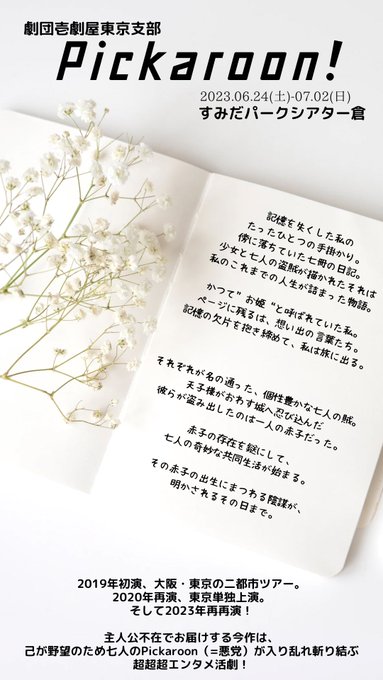 劇団壱劇屋東京支部
Pickaroon!
2023.06.24(土)-07.02(日)
すみだパークシアター倉
記憶を失くした私の
たったひとつの手掛かり。
傍に落ちていた七冊の日記。
少女と七人の盗賊が描かれたそれは
私のこれまでの人生が詰まった物語。
かつて”お姫“と呼ばれていた私。
ページに残るは、想い出の言葉たち。
記憶の欠片を抱き締めて、私は旅に出る。
それぞれが名の通った、個性豊かな七人の賊。
天子様がおわす城へ忍び込んだ
彼らが盗み出したのは一人の赤子だった。
赤子の存在を錠にして、
七人の奇妙な共同生活が始まる。
その赤子の出生にまつわる陰謀が、
明かされるその日まで。
2019年初演、大阪・東京の二都市ツアー。
2020年再演、東京単独上演。
そして2023年再再演！
主人公不在でお届けする今作は、
己が野望のため七人のPickaroon（=悪党）が入り乱れ斬り結ぶ
超超超エンタメ活劇！